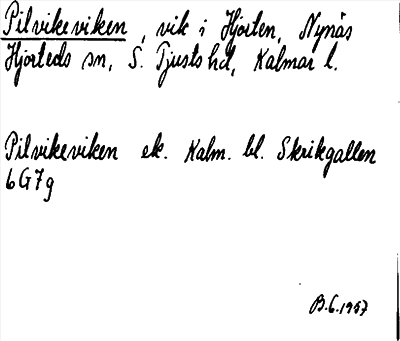 Pilvikeviken, vik i Hjorten, Nynäs
Hjorteds sn, S. Tjusts hd, Kalmar l.
Pilvikeviken ek. Kalm. bl. Skrikgallen
6G7g
B.G. 1957